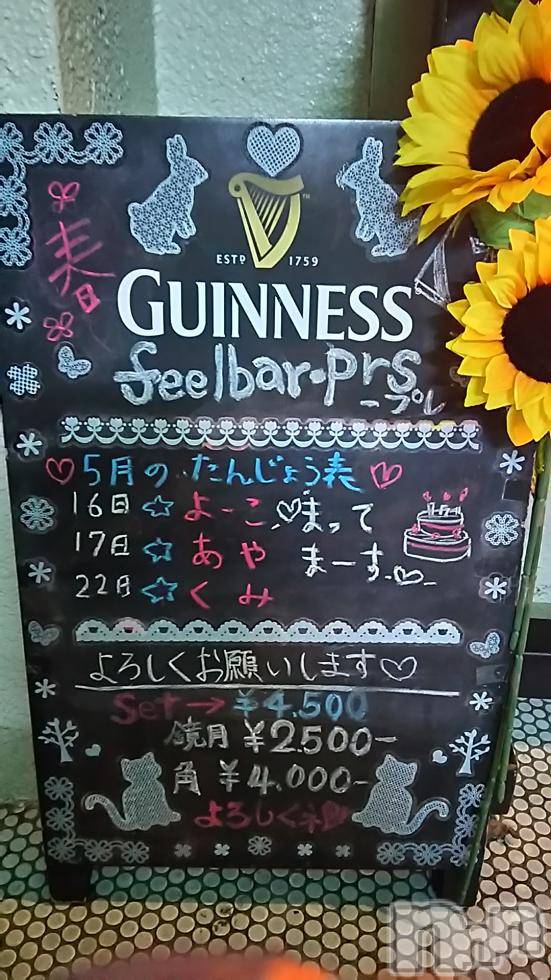 春日
ESTD 1759
GUINNESS
feelbar・prs
-プレ
5月のたんじょう表
16日☆よーこ♡まって
17日☆あや まーす♡
22日☆くみ
よろしくお願いします♡
Set→¥4.500
鏡月 ¥2.500-
角 ¥4.000-
よろしくネ